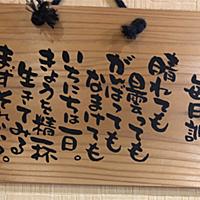 毎日訓
晴れても
曇っても
がんばっても
なまけても
いちにちは一日。
きょうを精一杯
生きてみる。
まずそれから。